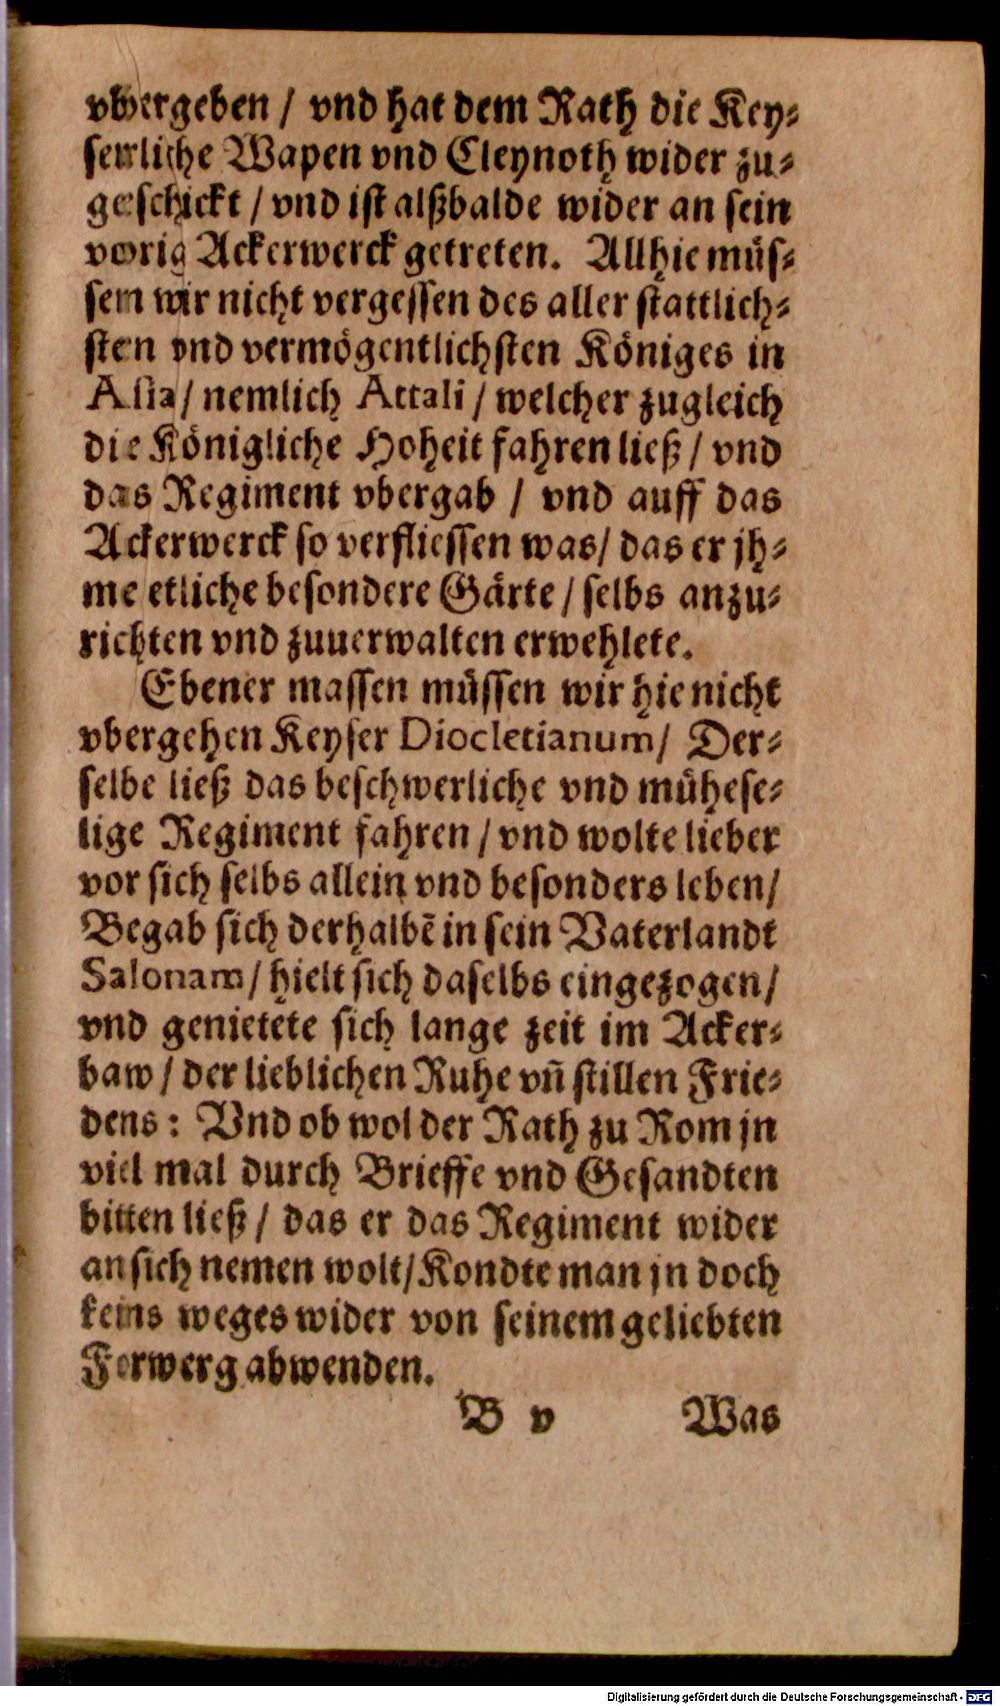 vbergeben / vnd hat dem Rath die Key⸗
serliche Wapen vnd Cleynoth wider zu⸗
geschickt / vnd ist alßbalde wider an sein
vorig Ackerwerck getreten. Allhie müs⸗
sen wir nicht vergessen des aller stattlich⸗
sten vnd vermögentlichsten Königes in
Asia / nemlich Attali / welcher zugleich
die Königliche Hoheit fahren ließ / vnd
das Regiment vbergab / vnd auff das
Ackerwerck so verfliessen was / das er jh⸗
me etliche besondere Gärte / selbs anzu⸗
richten vnd zuuerwalten erwehlete.
Ebener massen müssen wir hie nicht
vbergehen Keyser Diocletianum / Der⸗
selbe ließ das beschwerliche vnd mühese⸗
lige Regiment fahren / vnd wolte lieber
vor sich selbs allein vnd besonders leben /
Begab sich derhalbẽ in sein Vaterlandt
Salonam / hielt sich daselbs eingezogen /
vnd genietete sich lange zeit im Acker⸗
baw / der lieblichen Ruhe vñ stillen Frie⸗
dens : Vnd ob wol der Rath zu Rom jn
viel mal durch Brieffe vnd Gesandten
bitten ließ / das er das Regiment wider
an sich nemen wolt / Kondte man jn doch
keins weges wider von seinem geliebten
Forwerg abwenden.
B v Was
Digitalisierung gefördert durch die Deutsche Forschungsgemeinschaft - DFG